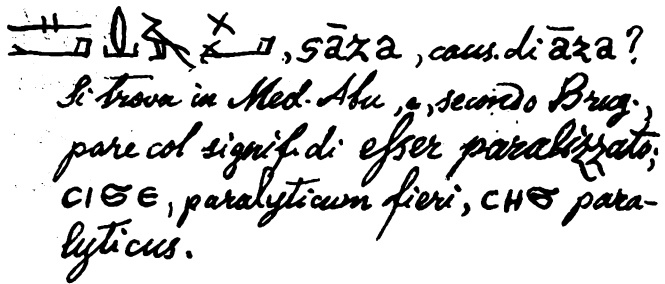 , sāza, caus. di āza?
Si trova in Med. Abu, e, secondo Brug.,
pare col signif. di esser paralizzato;
ⲤⲒϬⲈ, paralyticum fieri, ⲤⲎϬ para-
lyticus.